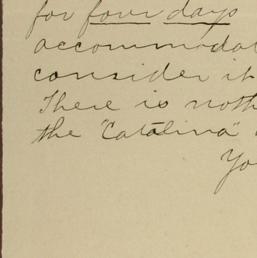 for four days
accommodat
consider it
There is noth
the "Catalina"
Yo